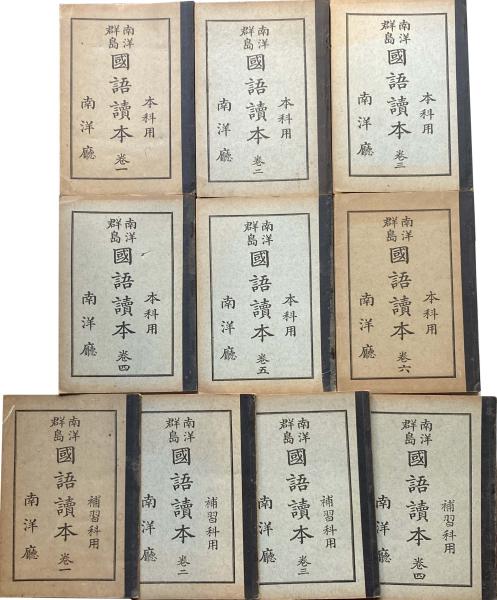 本科用
南洋群島
國語讀本 卷一
南洋廳
本科用
南洋群島
國語讀本 卷二
南洋廳
本科用
南洋群島
國語讀本 卷三
南洋廳
本科用
南洋群島
國語讀本 卷四
南洋廳
本科用
南洋群島
國語讀本 卷五
南洋廳
本科用
南洋群島
國語讀本 卷六
南洋廳
補習科用
南洋群島
國語讀本 卷一
南洋廳
補習科用
南洋群島
國語讀本 卷二
南洋廳
補習科用
南洋群島
國語讀本 卷三
南洋廳
補習科用
南洋群島
國語讀本 卷四
南洋廳